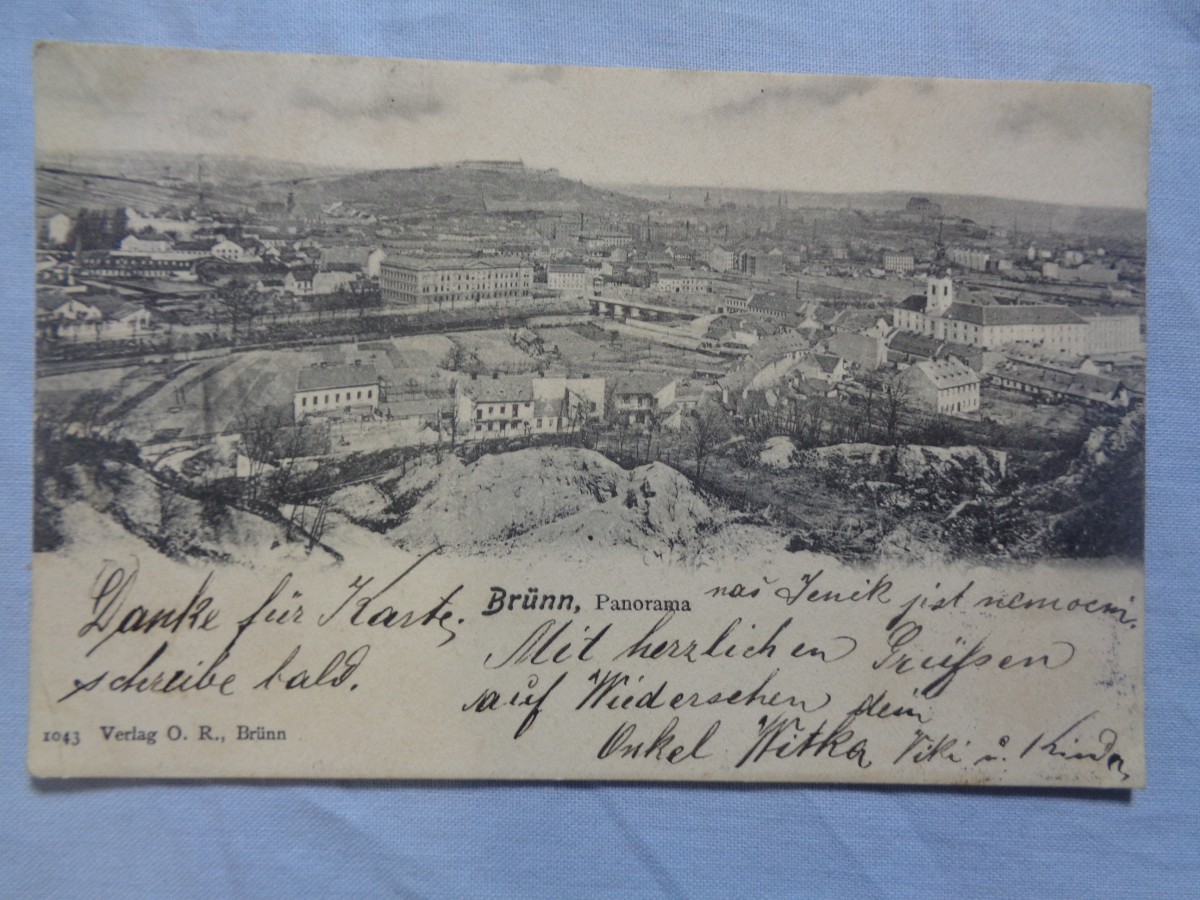 Brünn, Panorama
naš Jenik jist nemocni.
Danke für Karte.
schreibe bald.
Mit herzlichen Grüßen
auf Wiedersehen dein
Onkel Witka Viki u. Kinder
1043 Verlag O. R., Brünn